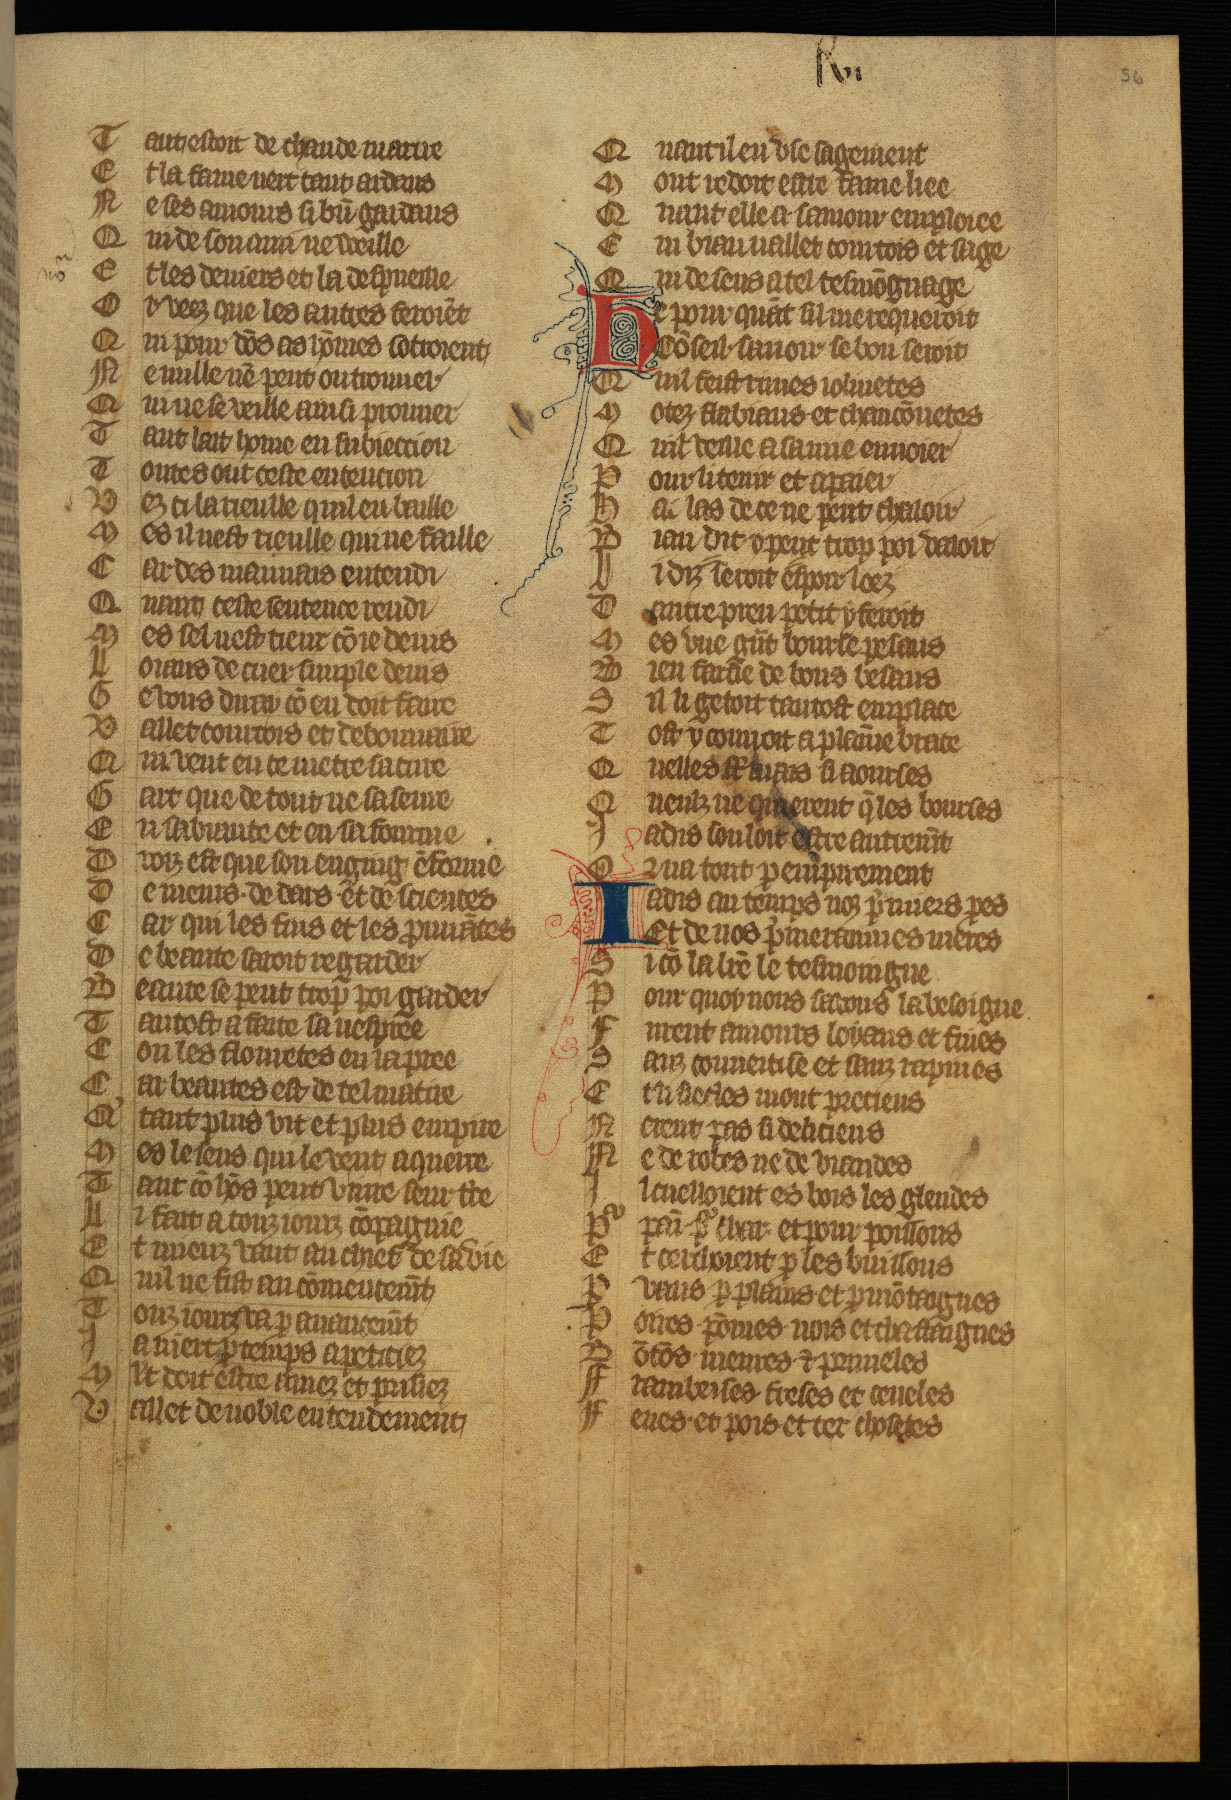 Rvi
56
T ant estoit de chaude matire
E t la fame uert tant ardans
N e ses amours si bñ gardans
Q ui de son ami ne vueille
E t les deniers et la despueille
O r veez que les autres feroiẽt
Q ui pour dõs as hõmes sotroient
N e nulle nẽ peut on trouuer
Q ui ne se veille ainsi prouuer
T ant lait home en subiection
T outes ont ceste entention
V ez ci la rieulle quil en baille
M es il nest rieulle qui ne faille
C ar des mauuais entendi
Q uant ceste sentence rendi
M es sel nest tieur cõ ie deuis
L oiaus de cuer simple de uis
G e vous diray cõ en doit faire
V allet courtois et debonnaire
Q ui veut en ce metre sa cure
G art que de tout ne sasseure
E n sa biaute et en sa fourme
D roiz est que son enging ẽforme
D e meurs de dars et de sciences
C ar qui les fins et les prouuãces
D e beaute saroit regarder
B eaute se peut trop poi garder
T antost a faite sa uespree
C on les flouretes en la pree
C ar beautes est de tel matire
Q tant plus vit et plus empire
M es le sens qui le veut aquerre
T ant cõ hõs peut viure seur tře
L i fait a touz iourz cõpagnie
E t mieuz vaut au chief de sa vie
Q uil ne fist au cõmencem̃t
T ouz iourz va p auancem̃t
J a niert p temps apeticiez
M lt doit estre amez et prisiez
V allet de noble entendement
Q uant il en vse sagement
M out redoit estre fame liee
Q uant elle a samour emploiee
E n biau uallet courtois et sage
Q ui de sens a tel tesmõgnage
N e pour quãt sil me requeroit
Cõseil sauoir se bon seroit
Q uil feist rimes ioliuetes
M otez flabiaus et chancõnetes
Q uil veille a samie enuoier
P our li tenir et apaier
H ai las de ce ne peut chaloir
B iau dit y peut trop poi valoir
L i diz seroit espoir loez
D autre preu petit y feroit
M es vne gñt bourse pesans
B ien farsie de bons besans
S il li getoit tantost emplace
T ost y courroit a plaine brace
Q uelles sũt mais si aourses
Q ueulz ne quierent q̃ les bourses
J adis souloit estre autrem̃t
O r ua tout p empirement
J adis au temps noz p̃miers peres
Et de nos p̃meraines meres
S i cõ la lrẽ le tesmoingne
P our quoy nous sauons la besoigne
F urent amours loyaus et fines
S anz conuertise et sanz rapines
E t li siecles mout precieus
N erent pas si delicieus
N e de robes ne de viandes
J l cuelloient es bois les glendes
P pain pour char et pour poissons
E t cerchoient p les buissons
P vaus p plains et p mõtaignes
P oires põmes nois et chastaignes
B otõs meures et pruneles
F ramboises freses et ceneles
F eues et pois et tex choseses